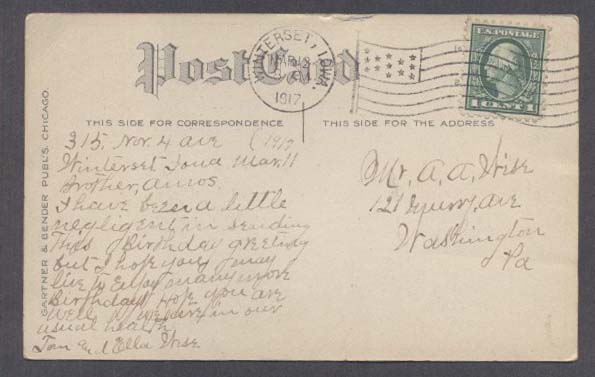 Post Card
WINTERSET, IOWA.
MAR 12
1917
U.S. POSTAGE
1 CENT 1
THIS SIDE FOR CORRESPONDENCE
THIS SIDE FOR THE ADDRESS
GARTNER & BENDER PUBL'S. CHICAGO.
315. Nor. 4 ave (1917
Winterset Iowa Mar. 11
Brother, Amos.
I have been a little
negligent in sending
This Birthday greeting
but I hope you may
live to Enjoy many more
Birthdays Hope you are
Well We are in our
usual health
Tom and Ella Wise
Mr. A. A. Wise
121 ave
Washington
Pa